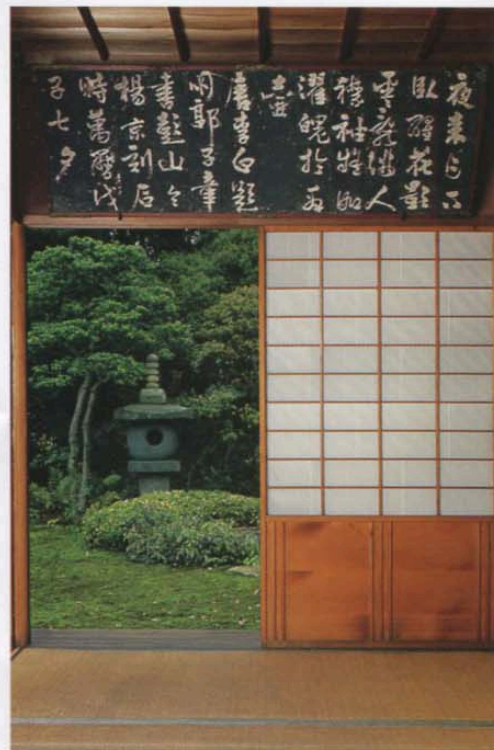 夜来月下
臥醒花影
零亂滿人
襟袖疑如
濯魄於冰
壺
唐李白題
明郭子章
書彭山令
楊京刻石
時萬曆戊
子七夕